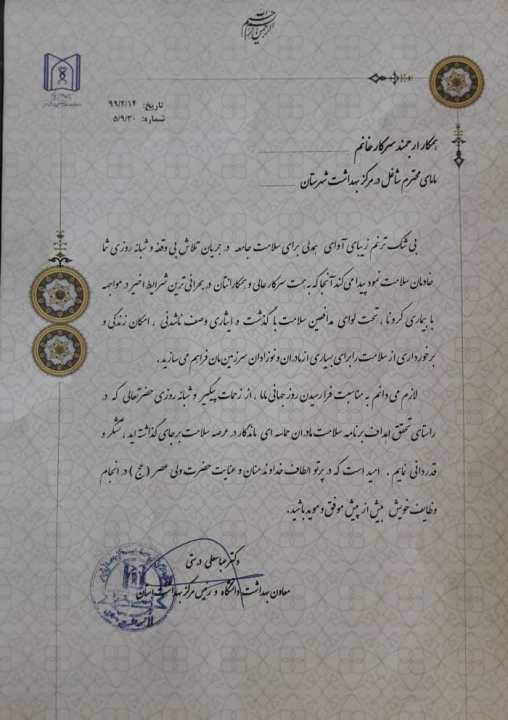 بسم الله الرحمن الرحیم
تاریخ: ۹۹/۲/۱۴
شماره: ۵/۹/۳۰
همکار ارجمند سرکار خانم
مامای محترم شاغل در مرکز بهداشت شهرستان
بی شک ترنم زیبای آوای همدلی برای سلامت جامعه در جریان تلاش بی وقفه و شبانه روزی شما
خادمان سلامت نمود پیدا می کند آنجا که به همت سرکار عالی و همکارانتان در بحرانی ترین شرایط اخیر در مواجهه
با بیماری کرونا ، تحت لوای مدافعین سلامت با گذشت و ایثاری وصف ناشدنی ، امکان زندگی و
برخورداری از سلامت را برای بسیاری از مادران و نوزادان سرزمین مان فراهم می سازید .
لازم می دانم به مناسبت فرارسیدن روز جهانی ماما ، از زحمات پیگیر و شبانه روزی حضرتعالی که در
راستای تحقق اهداف برنامه سلامت مادران حماسه ای ماندگار در عرصه سلامت برجای گذاشته اید ، تشکر و
قدردانی نمایم . امید است که در پرتو الطاف خداوند منان و عنایت حضرت ولی عصر (عج) در انجام
وظایف خویش بیش از پیش موفق و موید باشید.
دکتر عباسعلی درستی
معاون بهداشت دانشگاه و رئیس مرکز بهداشت استان